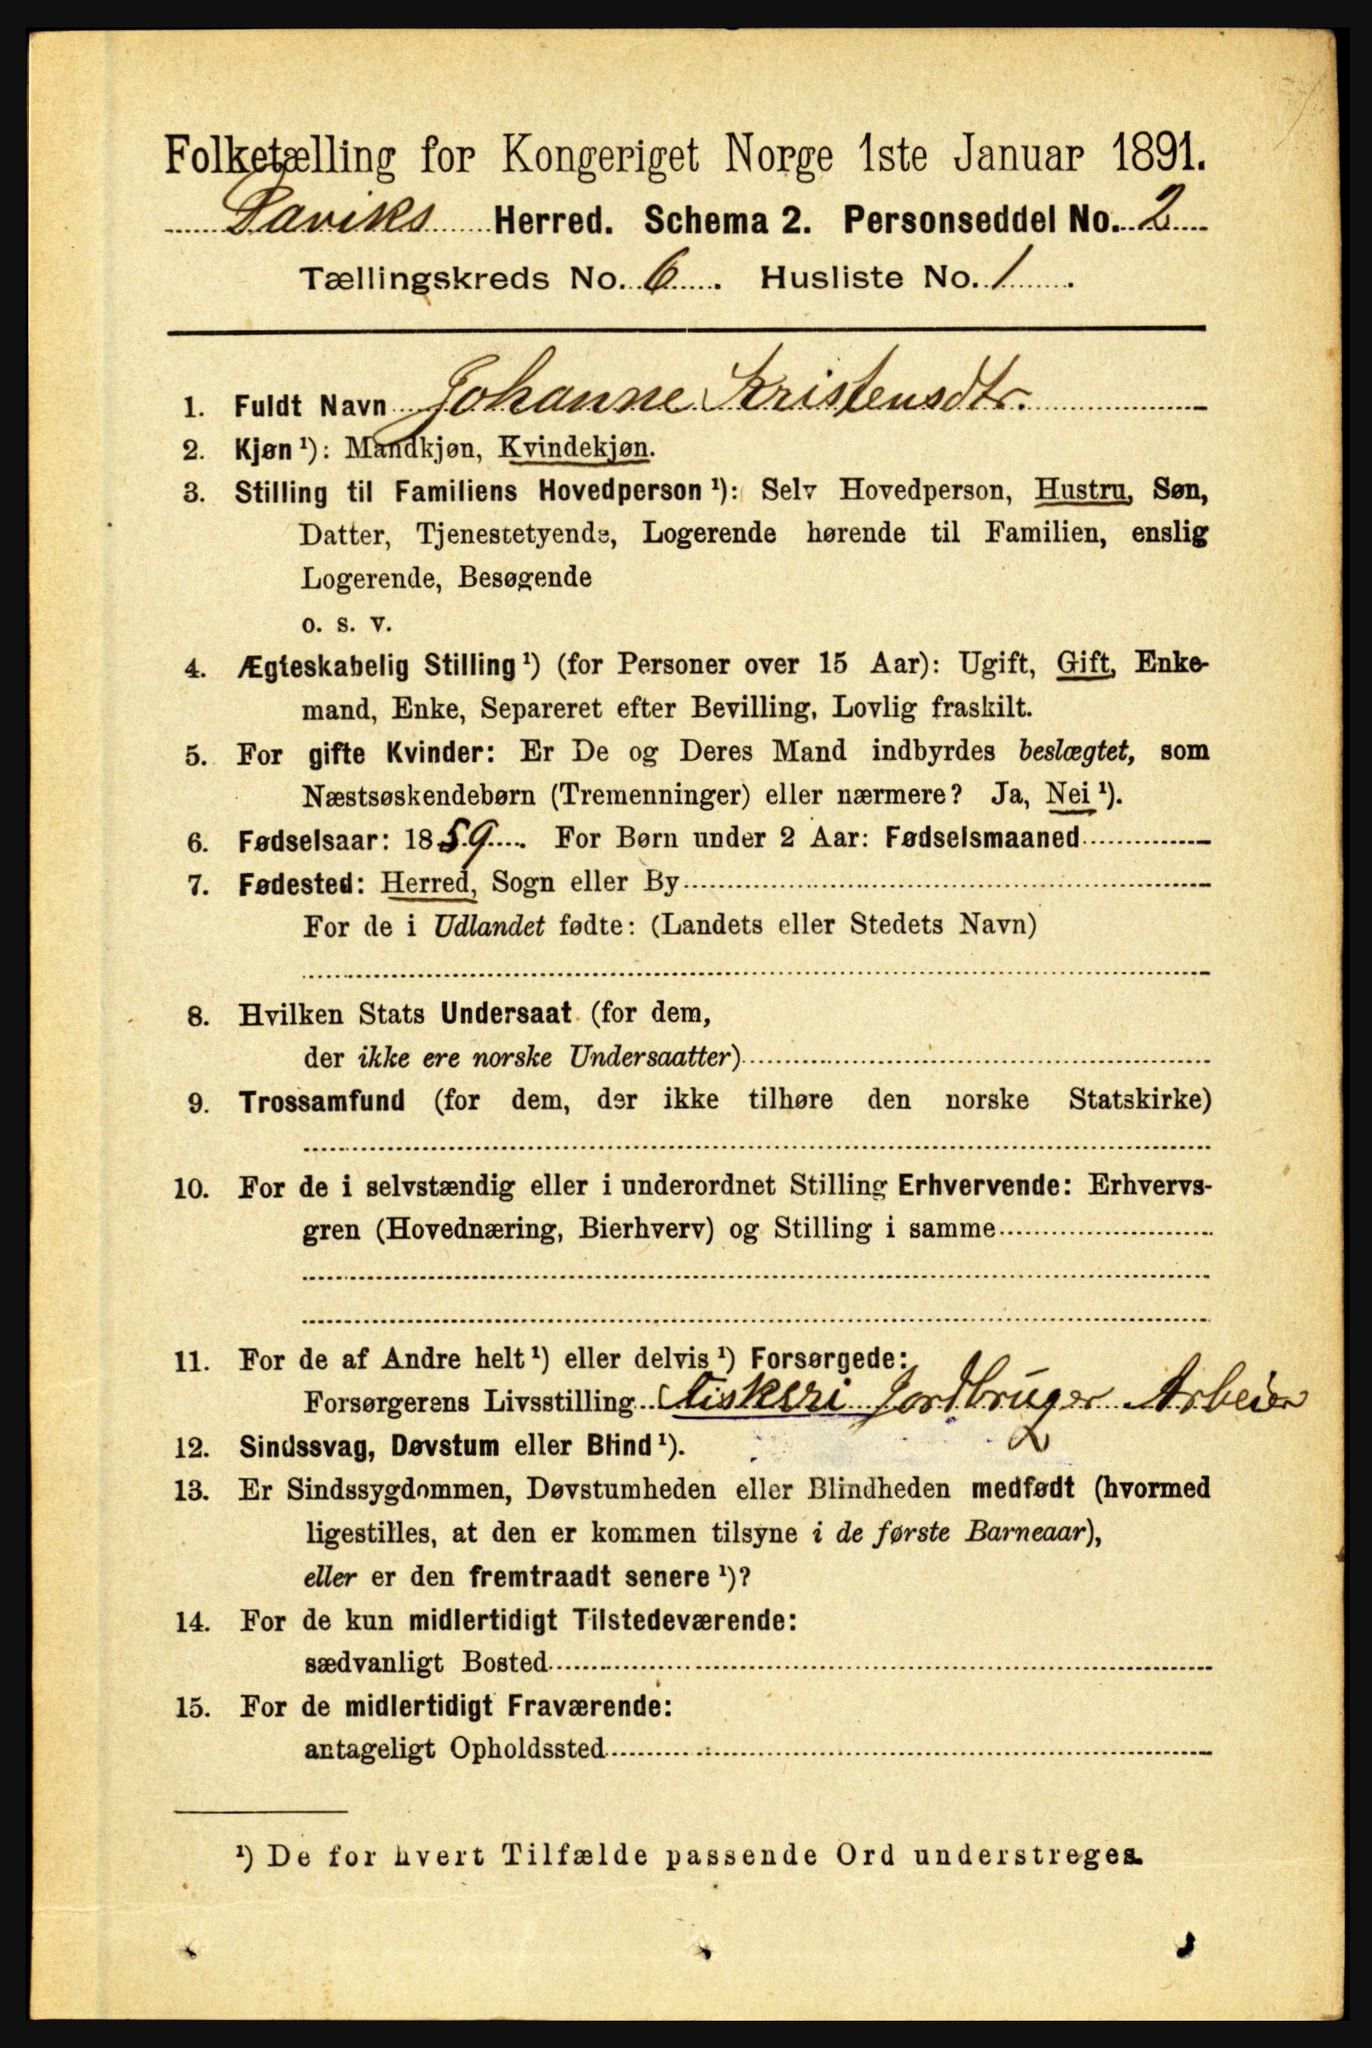 Folketælling for Kongeriget Norge 1ste Januar 1891.
Daviks Herred. Schema 2. Personseddel No. 2
Tællingskreds No. 6. Husliste No. 1.
1. Fuldt Navn Johanne Kristensdtr.
2. Kjøn¹): Mandkjøn, Kvindekjøn.
3. Stilling til Familiens Hovedperson¹): Selv Hovedperson, Hustru, Søn,
Datter, Tjenestetyende, Logerende hørende til Familien, enslig
Logerende, Besøgende
o. s. v.
4. Ægteskabelig Stilling¹) (for Personer over 15 Aar): Ugift, Gift, Enke-
mand, Enke, Separeret efter Bevilling, Lovlig fraskilt.
5. For gifte Kvinder: Er De og Deres Mand indbyrdes beslægtet, som
Næstsøskendebørn (Tremenninger) eller nærmere? Ja, Nei¹).
6. Fødselsaar: 1859. For Børn under 2 Aar: Fødselsmaaned
7. Fødested: Herred, Sogn eller By
For de i Udlandet fødte: (Landets eller Stedets Navn)
8. Hvilken Stats Undersaat (for dem,
der ikke ere norske Undersaatter)
9. Trossamfund (for dem, der ikke tilhøre den norske Statskirke)
10. For de i selvstændig eller i underordnet Stilling Erhvervende: Erhvervs-
gren (Hovednæring, Bierhverv) og Stilling i samme
11. For de af Andre helt¹) eller delvis¹) Forsørgede:
Forsørgerens Livsstilling Fiskeri Jordbruger Arbeier
12. Sindssvag, Døvstum eller Blind¹).
13. Er Sindssygdommen, Døvstumheden eller Blindheden medfødt (hvormed
ligestilles, at den er kommen tilsyne i de første Barneaar),
eller er den fremtraadt senere¹)?
14. For de kun midlertidigt Tilstedeværende:
sædvanligt Bosted
15. For de midlertidigt Fraværende:
antageligt Opholdssted
¹) De for hvert Tilfælde passende Ord understreges.